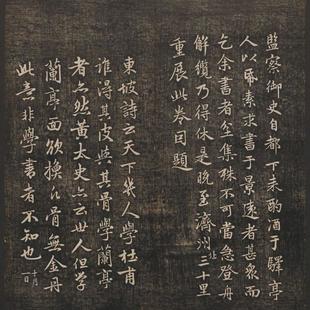 監察御史自都下来酌酒于驛亭
人以帋素求書于景遠者甚衆而
乞余書者坌集殊不可當急登舟
解纜乃得休是晚至濟州北三十里
重展此卷因題
東坡詩云天下幾人學杜甫
誰得其皮與其骨學蘭亭
者亦然黃太史亦云世人但學
蘭亭面欲換凡骨無金丹
此意非學書者不知也十月一日